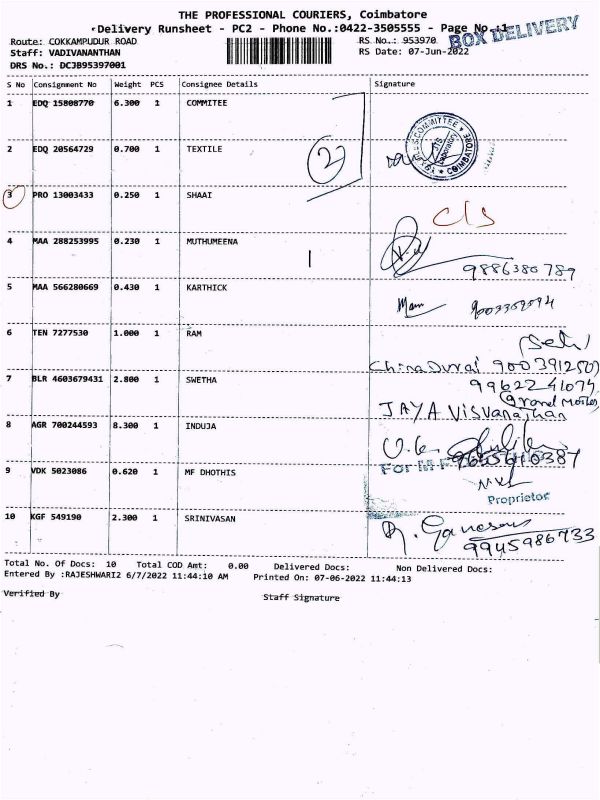 THE PROFESSIONAL COURIERS, Coimbatore
Delivery Runsheet - PC2 - Phone No.:0422-3505555 - Page No.:1
BOX DELIVERY
Route: COKKAMPUDUR ROAD RS No..: 953970
Staff: VADIVANANTHAN RS Date: 07-Jun-2022
DRS No.: DCJB95397001
S No Consignment No Weight PCS Consignee Details Signature
1 EDQ 15808770 6.300 1 COMMITEE
COMMITTEE COIMBATORE
2 EDQ 20564729 0.700 1 TEXTILE
2
3 PRO 13003433 0.250 1 SHAAI
C/S
4 MAA 288253995 0.230 1 MUTHUMEENA
9886380789
5 MAA 566280669 0.430 1 KARTHICK
6 TEN 7277530 1.000 1 RAM
China Durai
7 BLR 4603679431 2.800 1 SWETHA
9962241074
JAYA Visvanathan
8 AGR 700244593 8.300 1 INDUJA
For
9 VDK 5023086 0.620 1 MF DHOTHIS
Proprietor
10 KGF 549190 2.300 1 SRINIVASAN
R. Ganesan
9945986733
Total No. Of Docs: 10 Total COD Amt: 0.00 Delivered Docs: Non Delivered Docs:
Entered By :RAJESHWARI2 6/7/2022 11:44:10 AM Printed On: 07-06-2022 11:44:13
Verified By Staff Signature